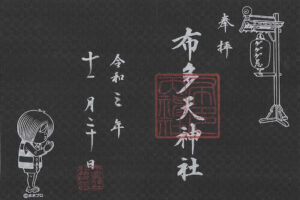 奉拝
布多天神社
令和三年
十一月三十日
©水木プロ